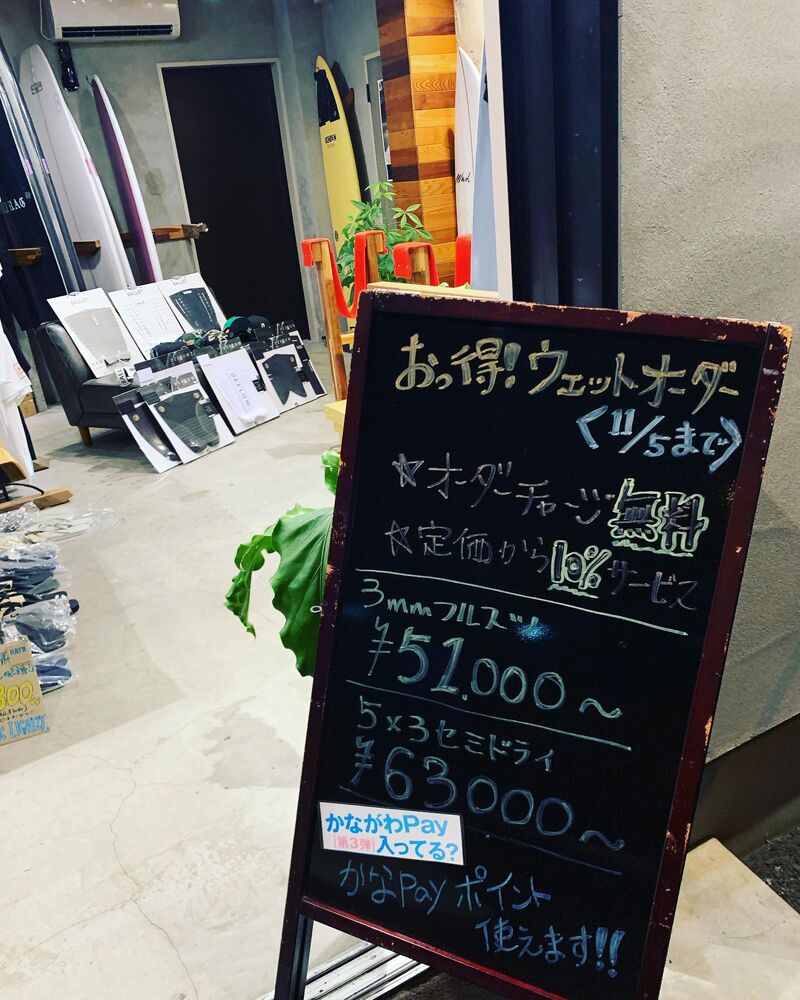 おっ得!ウェットオーダー
〈11/5まで〉
☆オーダーチャージ無料
☆定価から10%サービス
3mmフルスーツ
¥51.000〜
5×3セミドライ
¥63000〜
かながわPay
第3弾 入ってる?
かなPayポイント
使えます!!
DEFLOW
HAYN